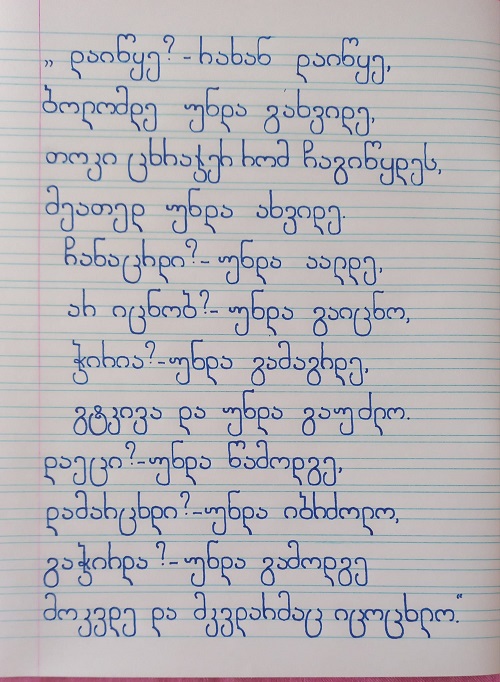 „ დაიწყე? - რახან დაიწყე,
ბოლომდე უნდა გახვიდე,
თოკი ცხრაჯერ რომ ჩაგიწყდეს,
მეათედ უნდა ახვიდე.
ჩანაცრდი? - უნდა აალდე,
არ იცნობ? - უნდა გაიცნო,
ჭირია? - უნდა გამაგრდე,
გტკივა და უნდა გაუძლო.
დაეცი? - უნდა წამოდგე,
დამარცხდი? - უნდა იბრძოლო,
გაჭირდა? - უნდა გამოდგე
მოკვდე და მკვდარმაც იცოცხლო.“